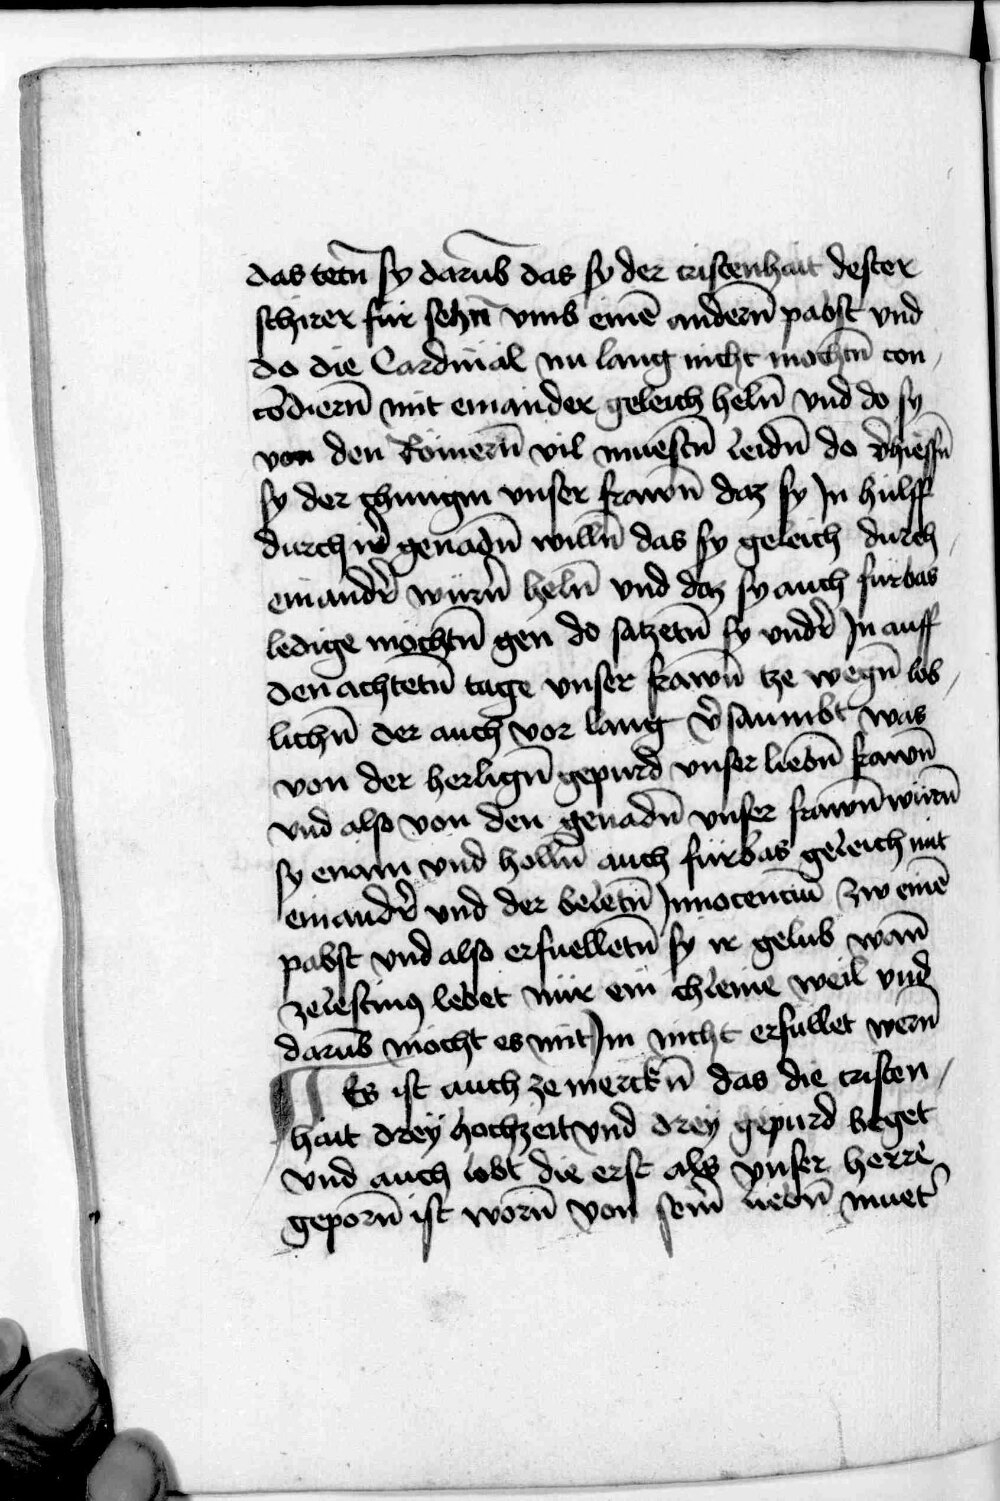 das tetn̄ sy darūb das sy der cristenhait dester
schirer für sehn̄ vmb einē andern̄ pabst vnd
do die Cardinäl nu lang nicht mochtn̄ con
cōdiern̄ mit einander geleich heln̄ vnd do sy
von den Römern̄ vil muestn̄ leidn̄ do v̄hiessn̄
sy der chunigin vnser frawn̄ daz sy Jn hülff
durch ir̄ genadn̄ willn̄ das sy geleich durch
einandr̄ würn̄ heln̄ vnd daz sy auch fürbas
ledige möchtn̄ gen do satzetn̄ sy vndr̄ Jn auff
den achtetn̄ tage vnser frawn̄ tze wegn̄ lob
lichn̄ der auch vor lang v̄saumbt was
von der herlign̄ gepurd vnser liebn̄ frawn̄
vnd also von den genadn̄ vnser frawn̄ würn̄
sy enain vnd holln̄ auch fürbas geleich mit
einandr̄ vnd der beletn̄ Jnnocenciū zw einē
pabst vnd also erfuelletn̄ sy ir gelub wan̄
zelestinꝰ lebet nür ein chleine weil vnd
darūb mocht es mit Jm nicht erfullet wern̄
¶ Es ist auch ze merckn̄ das die cristen
hait dreÿ hochzeit vnd dreÿ gepurd beget
vnd auch lobt die erst als vnser herre
geporn̄ ist worn̄ von sein̄ liebn̄ muet̄